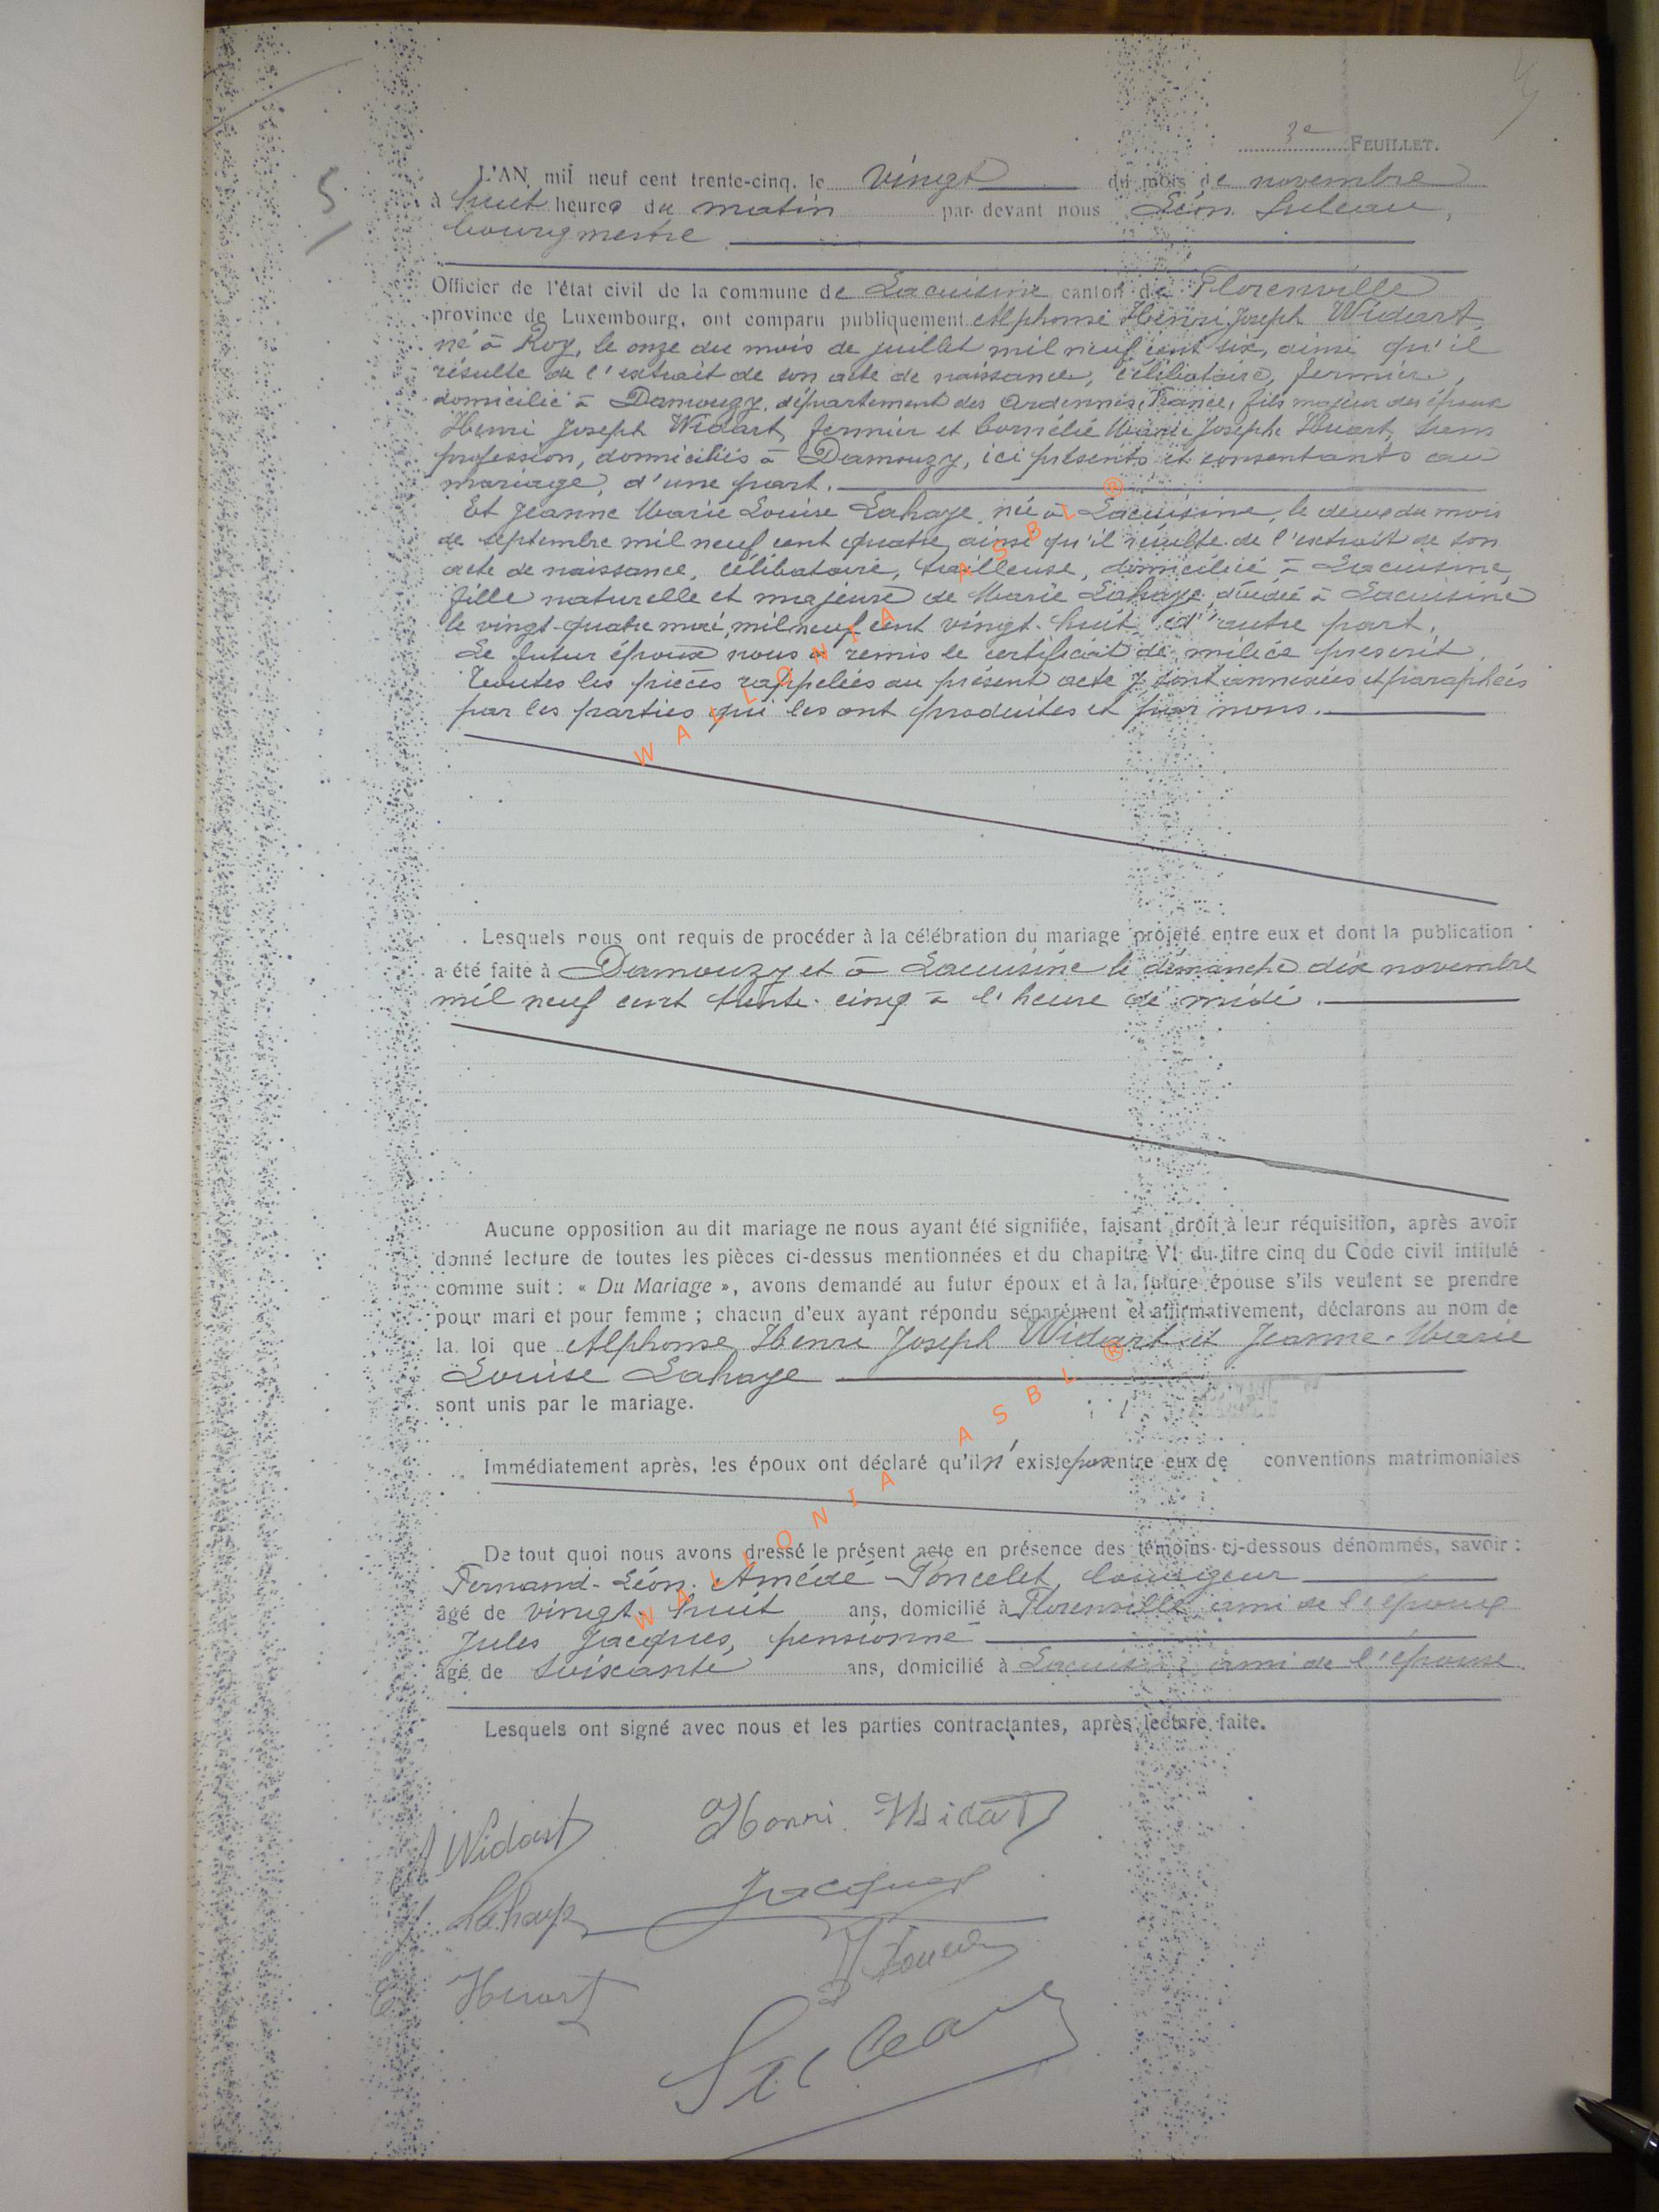 3e FEUILLET.
5
L'AN mil neuf cent trente-cinq, le vingt du mois de novembre
à huit heures du matin par devant nous Léon Suleau,
bourgmestre
Officier de l'état civil de la commune de Lacuisine canton de Florenville
province de Luxembourg, ont comparu publiquement Alphonse Henri Joseph Widart,
né à Roy, le onze du mois de juillet mil neuf cent six, ainsi qu'il
résulte de l'extrait de son acte de naissance, célibataire, fermier,
domicilié à Damouzy, département des Ardennes, France, fils majeur des époux
Henri Joseph Widart, fermier et Cornélie Marie Josephe Huart, sans
profession, domiciliés à Damouzy, ici présents et consentants au
mariage, d'une part.
Et Jeanne Marie Louise Lahaye, née à Lacuisine, le deux du mois
de septembre mil neuf cent quatre, ainsi qu'il résulte de l'extrait de son
acte de naissance, célibataire, tailleuse, domiciliée à Lacuisine,
fille naturelle et majeure de Marie Lahaye, décédée à Lacuisine
le vingt-quatre mai, mil neuf cent vingt-huit, d'autre part.
Le futur époux nous a remis le certificat de milice prescrit.
Toutes les pièces rappelées au présent acte y sont annexées et paraphées
par les parties qui les ont produites et par nous.
WALLONIA ASBL ®
Lesquels nous ont requis de procéder à la célébration du mariage projeté entre eux et dont la publication
a été faite à Damouzy et à Lacuisine le dimanche dix novembre
mil neuf cent trente-cinq à l'heure de midi.
Aucune opposition au dit mariage ne nous ayant été signifiée, faisant droit à leur réquisition, après avoir
donné lecture de toutes les pièces ci-dessus mentionnées et du chapitre VI du titre cinq du Code civil intitulé
comme suit : « Du Mariage », avons demandé au futur époux et à la future épouse s'ils veulent se prendre
pour mari et pour femme ; chacun d'eux ayant répondu séparément et affirmativement, déclarons au nom de
la loi que Alphonse Henri Joseph Widart et Jeanne-Marie
Louise Lahaye
sont unis par le mariage.
Immédiatement après, les époux ont déclaré qu'il n'existe pas entre eux de conventions matrimoniales
WALLONIA ASBL ®
De tout quoi nous avons dressé le présent acte en présence des témoins ci-dessous dénommés, savoir :
Fernand-Léon-Amédé Poncelet,
âgé de vingt-huit ans, domicilié à Florenville ami de l'époux
Jules Jacques, pensionné
âgé de soixante ans, domicilié à Lacuisine ami de l'épouse
Lesquels ont signé avec nous et les parties contractantes, après lecture faite.
A Widart Henri Widart
J. Lahaye Jacques
C Huart
Suleau